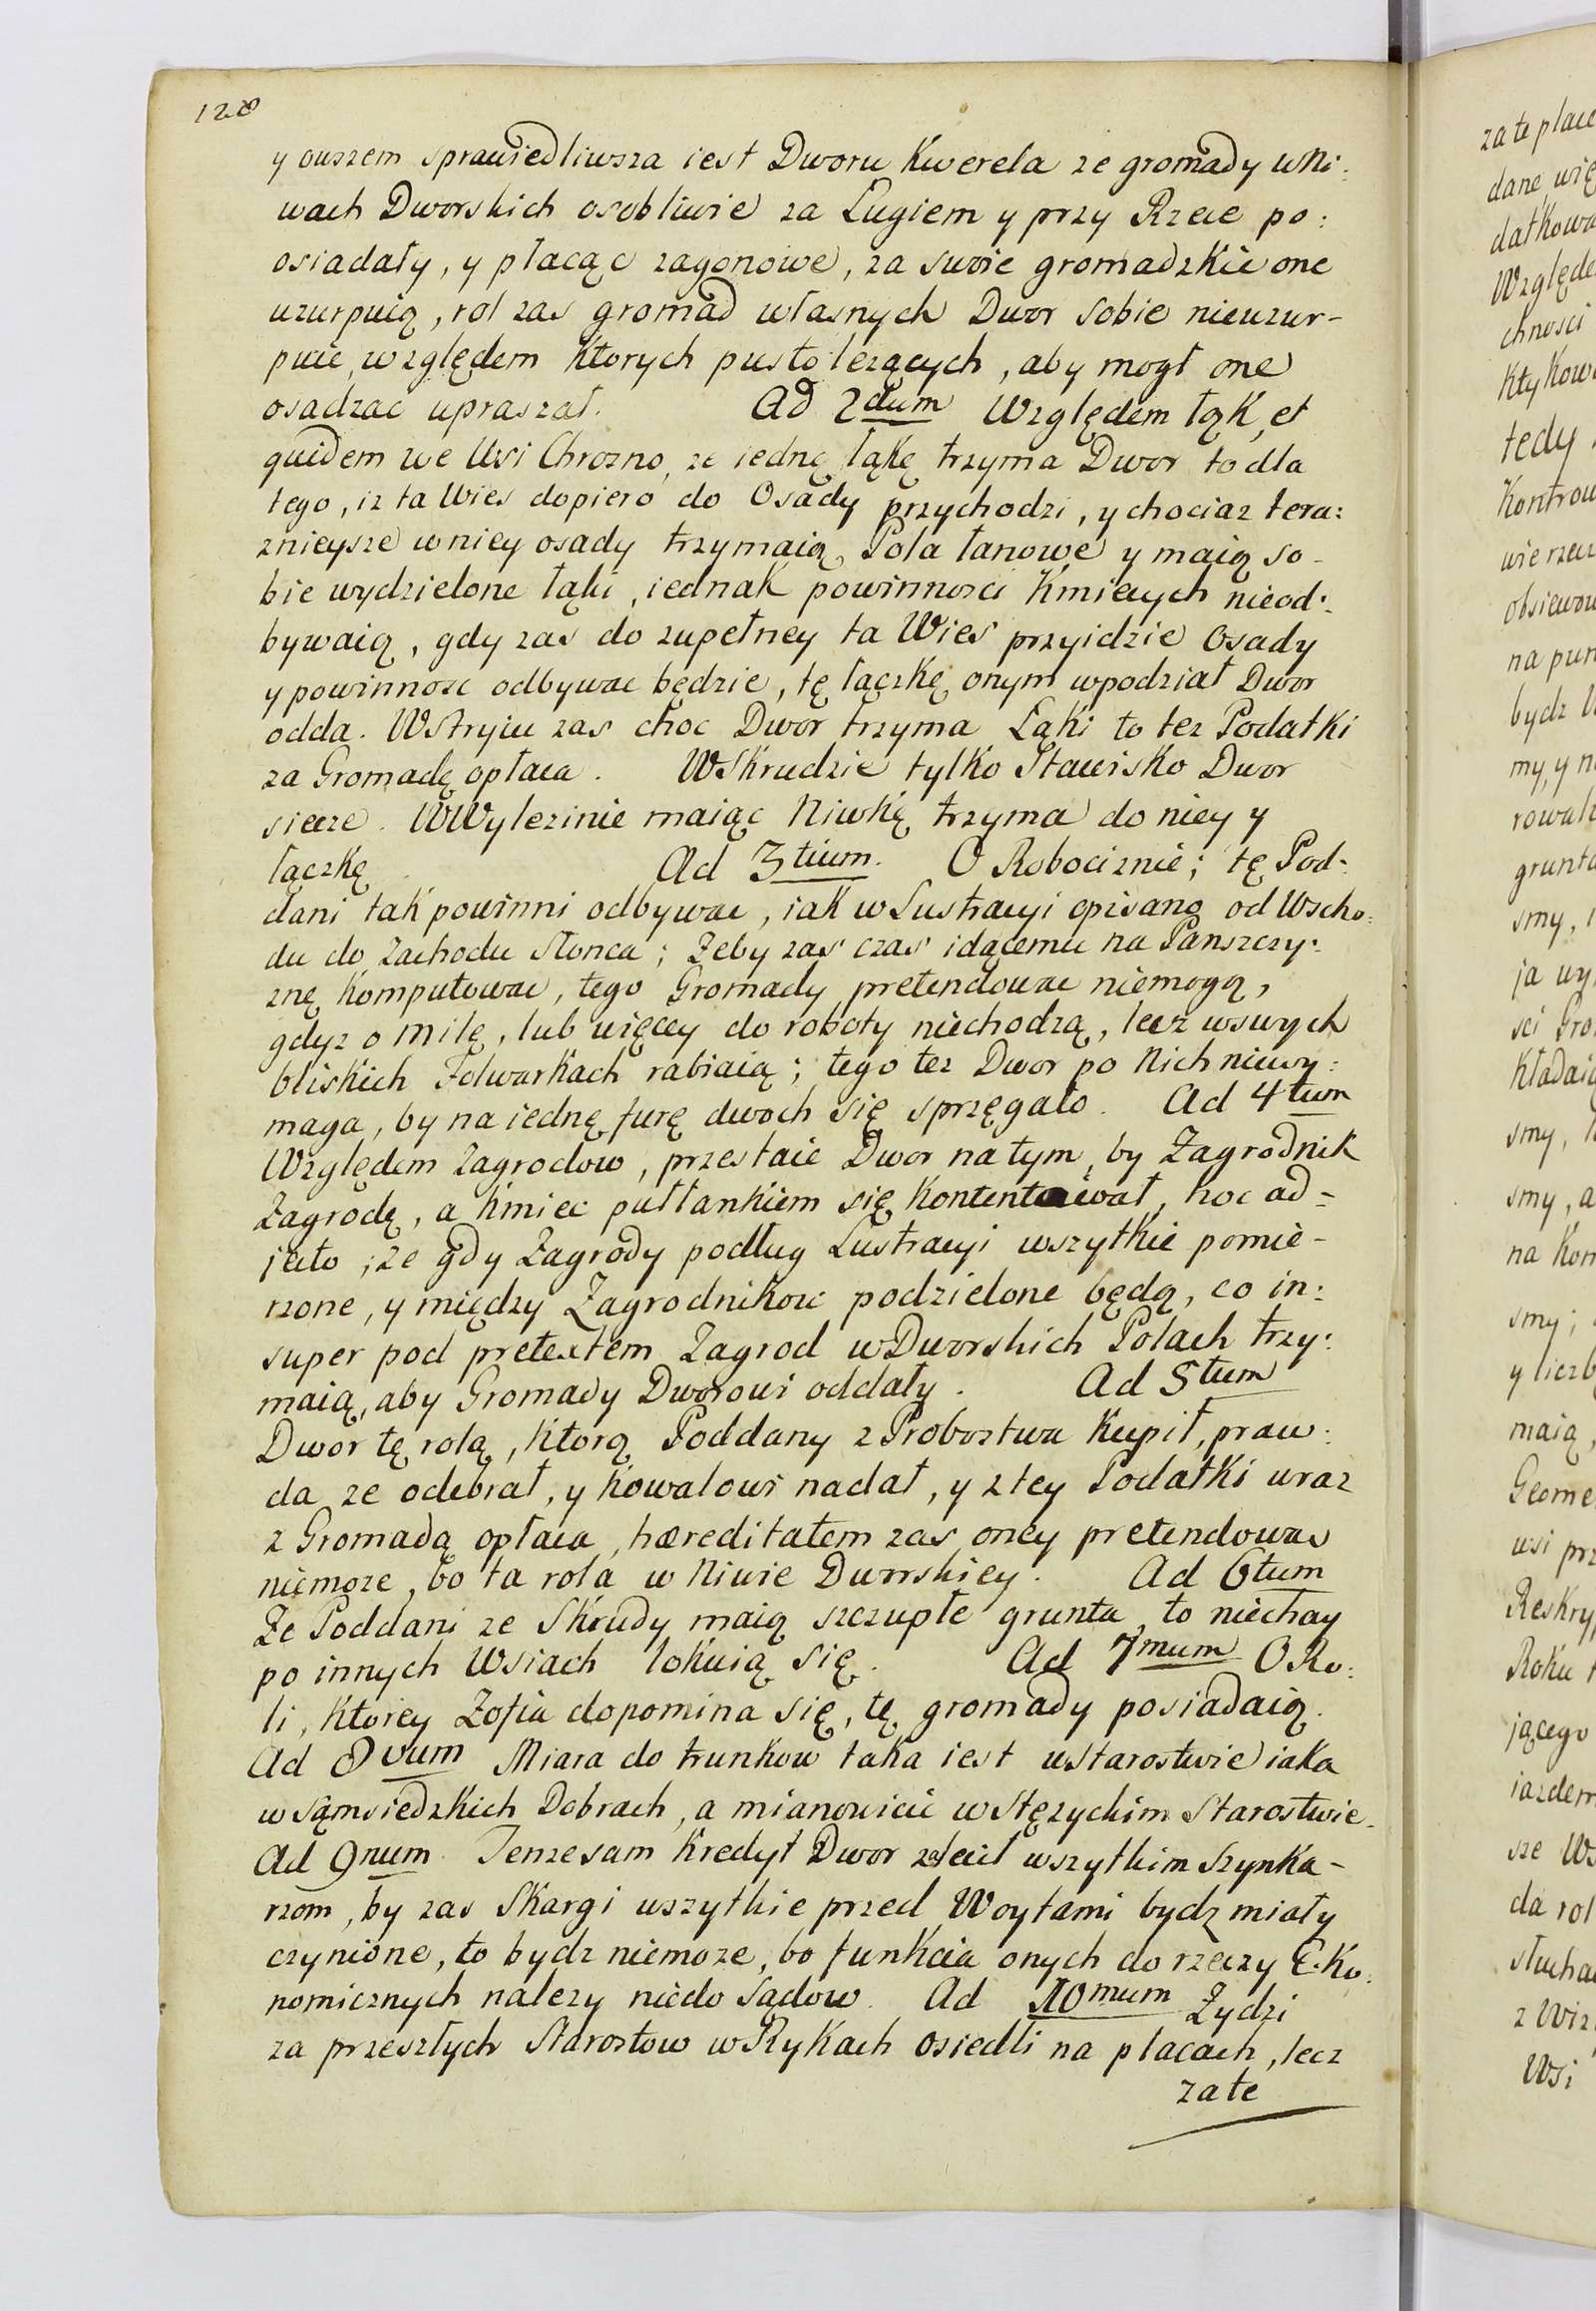 128
y owszem sprawiedliwsza iest Dworu Kwerela ze gromady w Ni:
wach Dworskich osobliwie za Ługiem y przy Rzece po:
osiadały, y płacąc zagonowe, za swoie gromadzkie one
uzurpuią, rol zas gromad własnych Dwor sobie nieuzur-
puie, względem ktorych pusto lezących, aby mogł one
osadzac upraszał. Ad 2dum Względem łąk, et
quidem we Wsi Chrozno, ze iednę łąkę trzyma Dwor to dla
tego, iz ta Wies dopiero do Osady przychodzi, y chociaz tera:
znieysze w niey osady trzymaią Pola łanowe y maią so-
bie wydzielone łąki, iednak powinnosci Kmiecych nieod:
bywaią, gdy zas do zupełney ta Wies przyidzie Osady
y powinnosc odbywac będzie, tę łączkę onym w podział Dwor
odda. W Stryiu zas choc Dwor trzyma Łąki to tez Podatki
za Gromadę opłaca. W Skrudzie tylko Stawisko Dwor
siecze. W Wylezinie maiąc Niwkę trzyma do niey y
łączkę. Ad 3tium. O Robociznie; tę Pod:
dani tak powinni odbywac, iak w Lustracyi opisano od Wscho:
du do Zachodu Słonca; Zeby zas czas idącemu na Panszczy:
znę komputowac, tego Gromady pretendowac niemogą,
gdyz o milę, lub więcey do roboty niechodzą, lecz w swych
bliskich Folwarkach rabiaią; tego tez Dwor po Nich niewy:
maga, by na iednę furę dwoch się sprzęgało. Ad 4tum
Względem Zagrodow, przestaie Dwor na tym, by Zagrodnik
Zagrodę, a kmiec pułłankiem się kontentował, hoc ad-
jecto; ze gdy Zagrody podług Lustracyi wszytkie pomie-
rzone, y między Zagrodnikow podzielone będą, co in:
super pod pretextem Zagrod w Dworskich Polach trzy:
maią, aby Gromady Dworowi oddały. Ad 5tum
Dwor tę rolą, ktorą Poddany z Probostwa kupił, praw:
da ze odebrał, y kowalowi nadał, y z tey Podatki wraz
z Gromadą opłaca, hæreditatem zas oney pretendowac
niemoze, bo ta rola w Niwie Dworskiey. Ad 6tum
Ze Poddani ze Skrudy maią szczupłe grunta to niechay
po innych Wsiach lokuią się. Ad 7mum O Ro:
li, ktorey Zofia dopomina się, tę gromady posiadaią.
Ad 8vum Miara do trunkow taka iest w Starostwie iaka
w sąmsiedzkich Dobrach, a mianowicie w Stęzyckim Starostwie.
Ad 9num. Tenze sam kredyt Dwor zlecił wszytkim Szynka-
rzom, by zas Skargi wszytkie przed Woytami bydz miały
czynione, to bydz niemoze, bo funkcia onych do rzeczy E:ko:
nomicznych nalezy niedo Sądow. Ad 10mum Zydzi
za przeszłych Starostow w Rykach osiedli na placach, lecz
za te
za te place
dane, wię
datkowa
Względe
chnosci
tedy
Kontrow
wie rzecz
obsiewow
na pun
bydz
my, y n
rowal
grunta
smy,
ja wy
sci Gro
kładaią
smy,
smy, a
na Kom
smy;
y liczb
maią,
Geome
wsi prz
Reskry
Roku
jącego
iazdem
sze Ws
da rol
słucha
z Wiz
Wsi